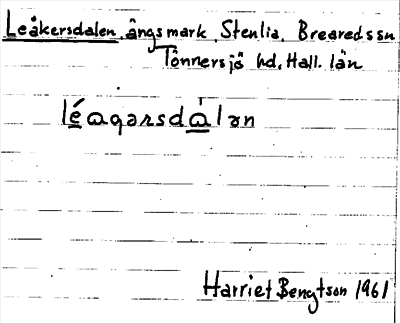 Leåkersdalen, ängsmark, Stenlia, Breareds sn
Tönnersjö hd. Hall. län
léagərsdàlən
Harriet Bengtson 1961